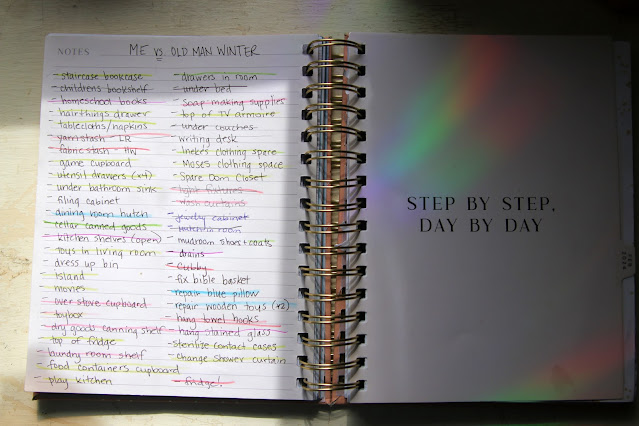 NOTES
ME VS. OLD MAN WINTER
- staircase bookcase
- childrens bookshelf
- homeschool books
- hair things drawer
- tablecloths/napkins
- yarn stash - LR
- fabric stash - HW
- game cupboard
- utensil drawers (x4)
- under bathroom sink
- filing cabinet
- dining room hutch
- cellar canned goods
- kitchen shelves (open)
- toys in living room
- dress up bin
- island
- movies
- over stove cupboard
- toybox
- dry goods canning shelf
- top of fridge
- laundry room shelf
- food containers cupboard
- play kitchen
- drawers in room
- under bed
- soap making supplies
- top of TV armoire
- under couches
- writing desk
- Ineke's clothing spare
- Moses clothing space
- Spare Dom Closet
- light fixtures
- wash curtains
- jewelry cabinet
- room
- mudroom shoes + coats
- drains
- Cubby
- fix bible basket
- repair blue pillow
- repair wooden toys (x2)
- hang towel hooks
- hang stained glass
- sterilize contact cases
- change shower curtain
- fridge!
STEP BY STEP,
DAY BY DAY